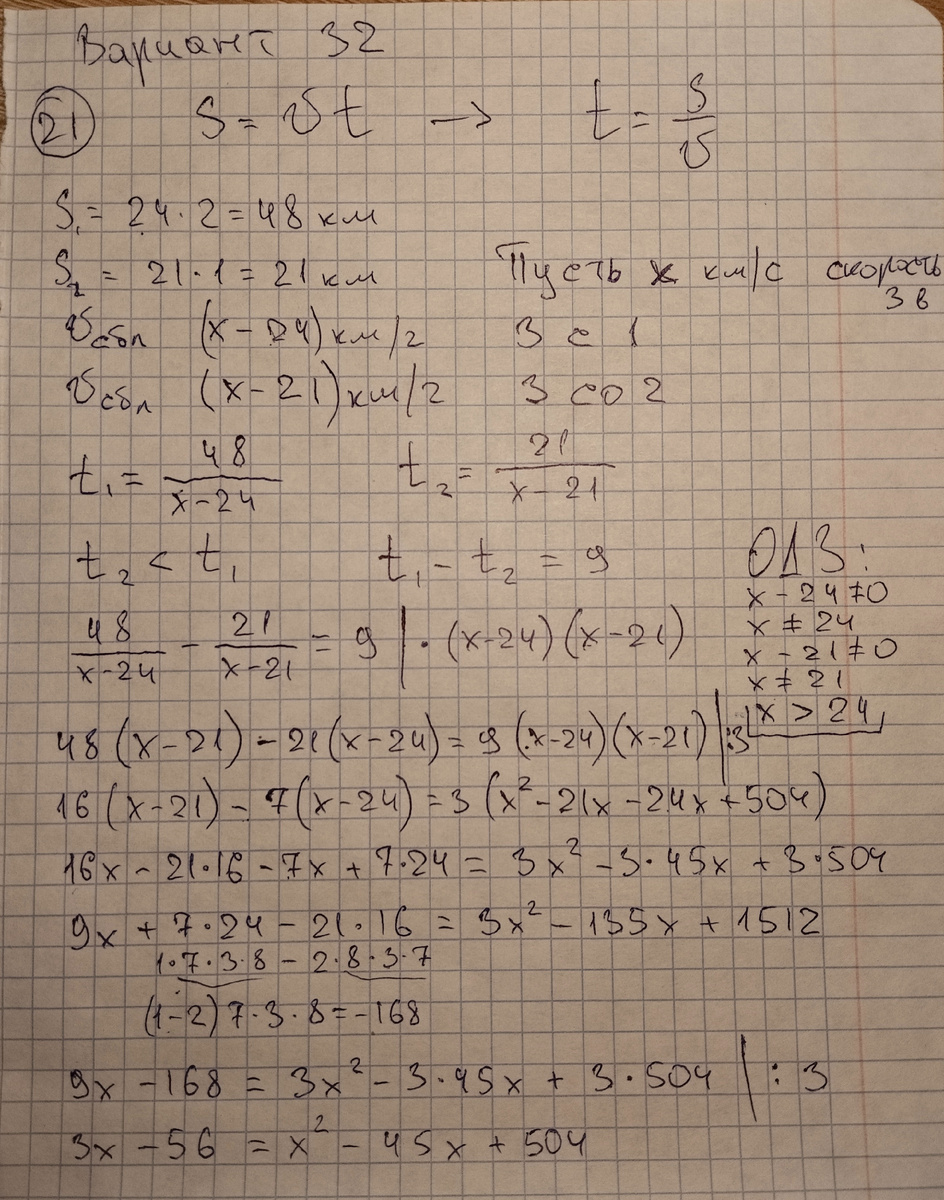 Вариант 32
21 S = vt → t = S/v
S₁ = 24·2 = 48 км
S₂ = 21·1 = 21 км Пусть x км/с скорость
3 в
vсбл (x - 24) км/г 3 с 1
vсбл (x - 21) км/г 3 со 2
t₁ = 48/(x-24) t₂ = 21/(x-21)
t₂ < t₁ t₁ - t₂ = 9 ОДЗ:
x - 24 ≠ 0
x ≠ 24
48/(x-24) - 21/(x-21) = 9 | · (x-24)(x-21)
x - 21 ≠ 0
x ≠ 21
x > 24
48(x-21) - 21(x-24) = 9(x-24)(x-21) | :3
16(x-21) - 7(x-24) = 3(x² - 21x - 24x + 504)
16x - 21·16 - 7x + 7·24 = 3x² - 3·45x + 3·504
9x + 7·24 - 21·16 = 3x² - 135x + 1512
1·7·3·8 - 2·8·3·7
(1-2) 7·3·8 = -168
9x - 168 = 3x² - 3·45x + 3·504 | : 3
3x - 56 = x² - 45x + 504